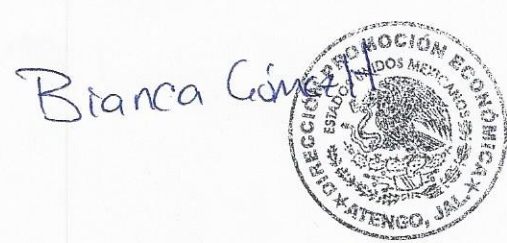 Bianca Gómez H
DIRECCIÓN PROMOCIÓN ECONÓMICA
ESTADOS UNIDOS MEXICANOS
ATENGO, JAL.